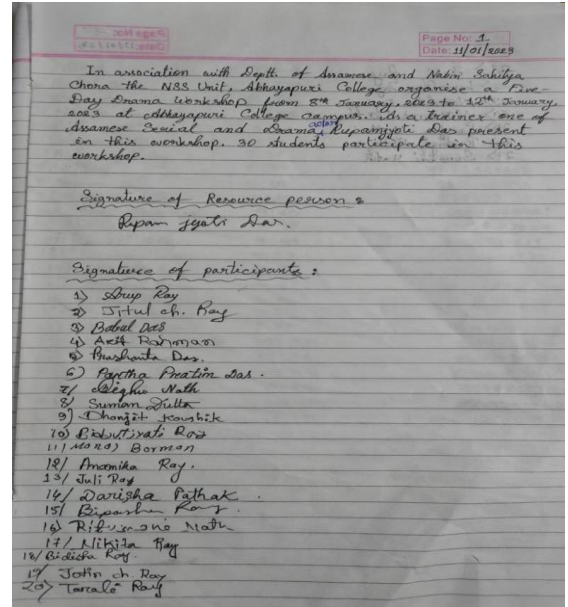 Page No: 1
Date: 11/01/2023
In association with Deptt. of Assamese and Nabin Sahitya
Chora the NSS Unit, Abhayapuri College organise a Five-
Day Drama workshop from 8th January, 2023 to 12th January,
2023 at Abhayapuri College campus. As a trainer one of
Assamese Serial and drama actor, Rupamjyoti Das present
in this workshop. 30 students participate in this
workshop.
Signature of Resource person :
Rupam jyoti Das.
Signature of participants :
1) Arup Ray
2) Jitul ch. Ray
3) Babul Das
4) Asif Rahman
5) Prashanta Das.
6) Partha Pratim Das.
7/ Nath
8/ Suman Dutta
9) Dhanjit Koushik
10) Ray
11) Barman
12/ Anamika Ray.
13/ Juli Ray
14/ Darisha Pathak.
15/ Bipasha Ray.
16) Nath
17/ Nikita Ray
18/ Bidisha Ray.
19/ Jotin ch. Ray
20) Ray